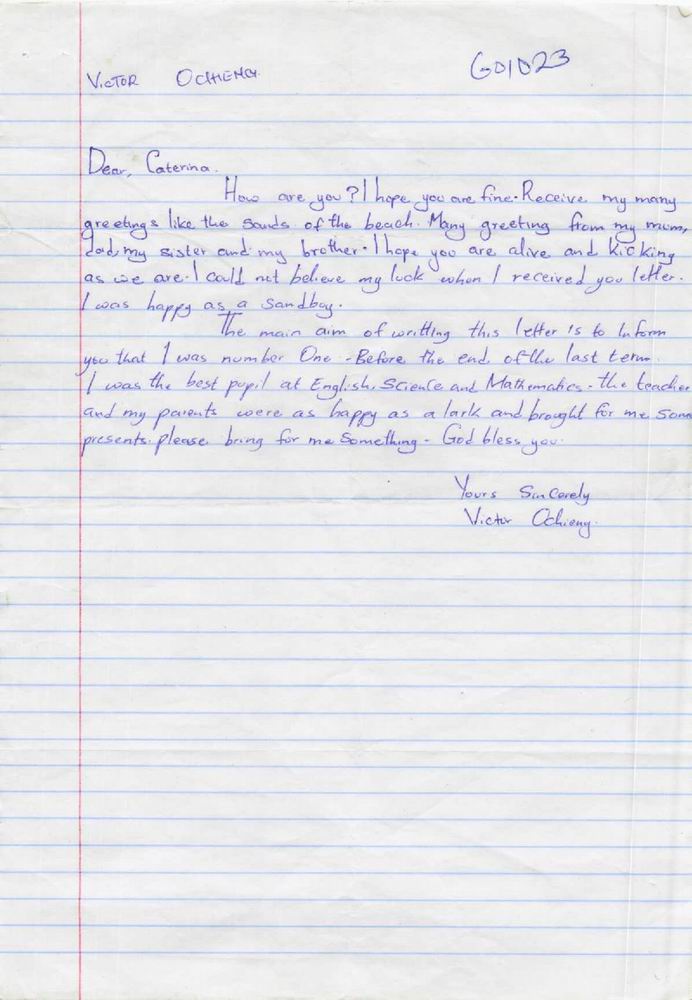 VICTOR OCHIENG.
G01023
Dear, Caterina.
How are you? I hope you are fine. Receive my many
greetings like the sands of the beach. Many greeting from my mum,
dad, my sister and my brother. I hope you are alive and kicking
as we are. I could not believe my luck when I received you letter.
I was happy as a sandboy.
The main aim of writting this letter is to Inform
you that I was number One. Before the end of the last term.
I was the best pupil at English, Science and Mathematics. the teacher
and my parents were as happy as a lark and brought for me som
presents. please bring for me something. God bless you.
Yours Sincerely
Victor Ochieng.